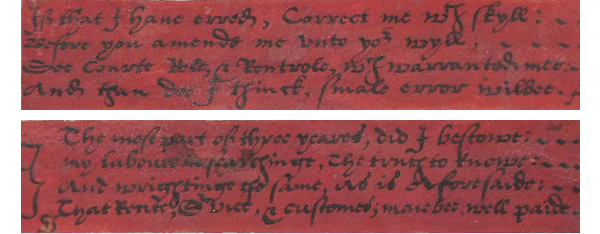 If that I haue erred, Correct me wth skyll:
Before you amende me vnto yor wyll,
See Courte Role, & Rentrole, wth warranted mee:
And than doe I thinck, smale error wilbee.
The most part of three yeares, did I bestowe:
my labour in searchinge, The truth to knowe:
And wrightinge the same, As is Aforesaide:
That Rente, Svice, & customes, maie bee well paide